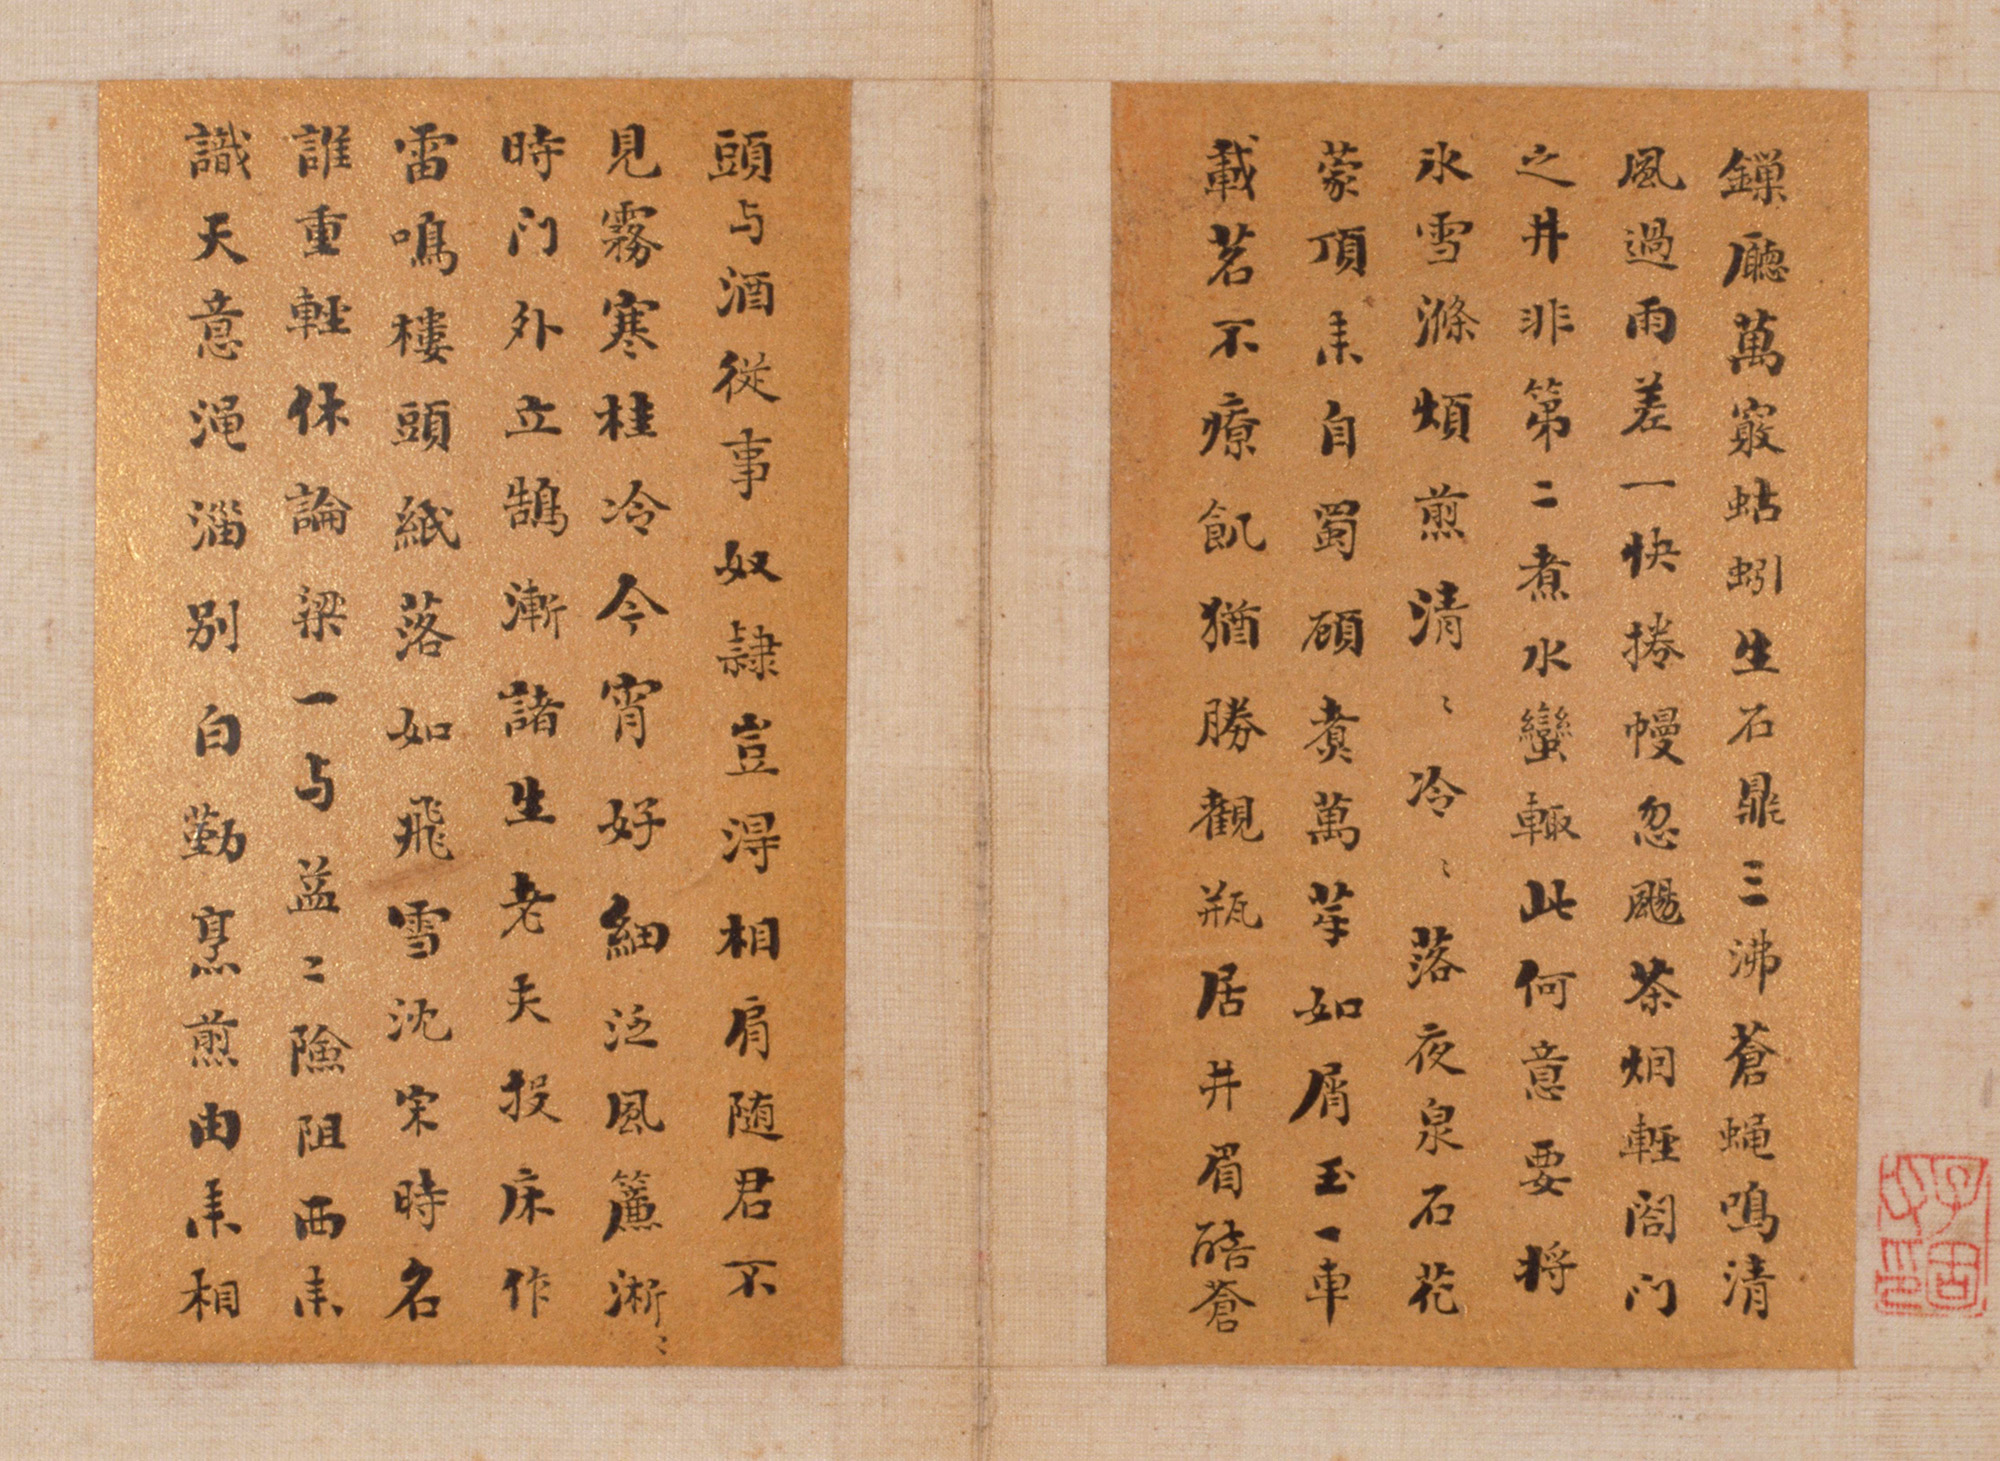 鏁廳萬竅蛄蚓生石鼎三沸蒼蠅鳴清
風過雨差一快捲幔忽颺茶烟輕閤门
之井非第二煮水蠻輙此何意要将
氷雪滌煩煎清〻冷〻落夜泉石花
蒙頂来自蜀顧煑萬芽如屑玉一車
載茗不療飢猶勝觀瓶居井眉酷蒼
頭与酒從事奴隷豈淂相肩随君不
見霧寒桂冷今宵好細泛風簾淅〻
時门外立鵠漸諸生老夫投床作
雷鳴樓頭紙落如飛雪沈宋時名
誰重輕休論梁一与益二險阻西来
識天意渑淄别白勤烹煎由来相